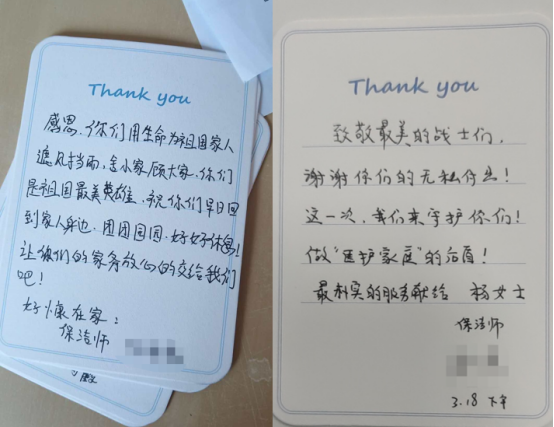 Thank you
感恩，你们用生命为祖国家人
遮风挡雨，舍小家顾大家，你们
是祖国最美英雄，祝你们早日回
到家人身边，团团圆圆，好好休息！
让你们的家务放心的交给我们
吧！
好慷在家：
保洁师
Thank you
致敬最美的战士们，
谢谢你们的无私付出！
这一次，我们来守护你们！
做“医护家庭”的后盾！
最朴实的服务献给 杨女士
保洁师
3.18 下午